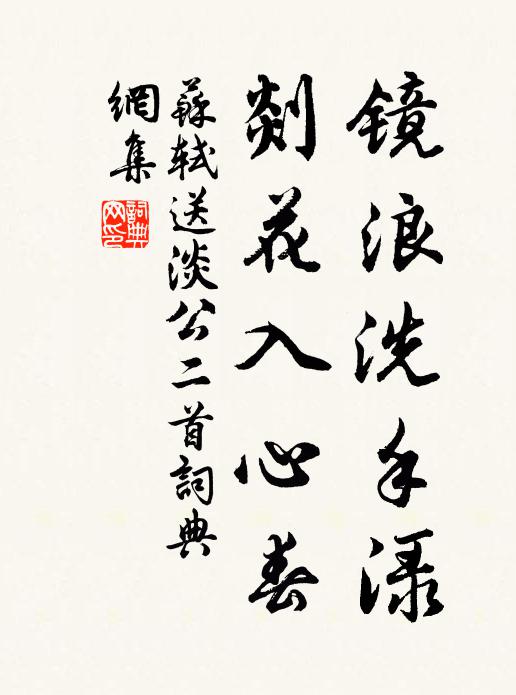 镜浪洗手渌
剡花入心春
蘇軾送淡公二首詞典
網集
詞典
网印